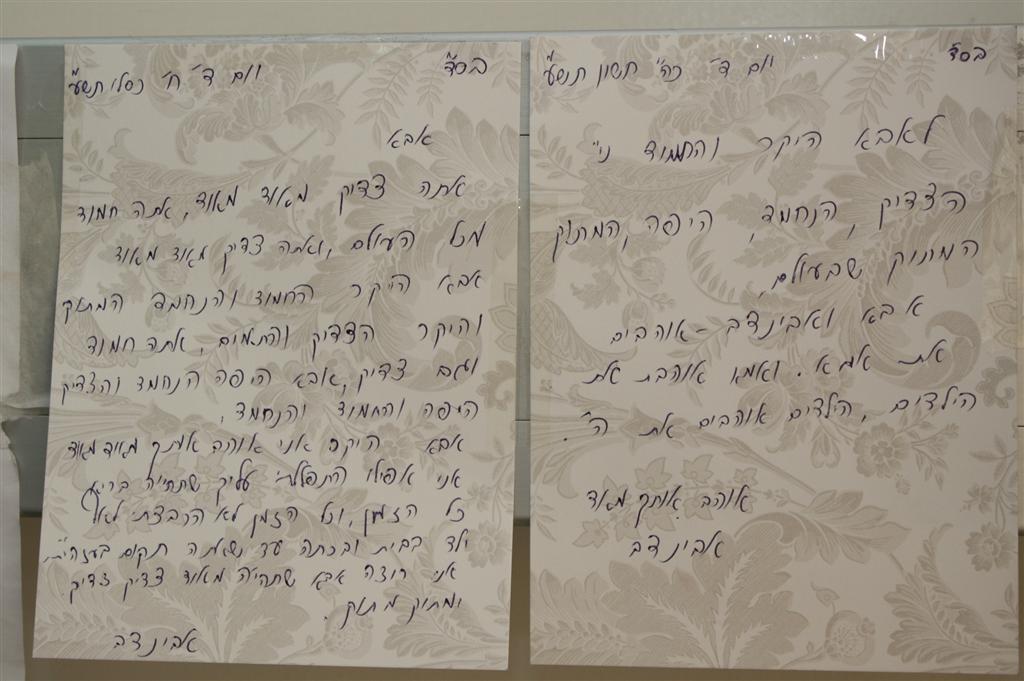 בס"ד
יום ד' כה' חשון תשע"
לאבא היקר והחמוד ני"
הצדיק, הנחמד, היפה, המתוק
המתוק שבעולם,
אבא ואבינדב - אוהבים
את אמא. ואמא אוהבת את
הילדים, הילדים אוהבים את ה'.
אוהב אותך מאוד
אבינדב
בס"ד
יום ד' ח' כסלו תשע"
אבא
אתה צדיק מאוד מאוד, אתה חמוד
מכל העולם, ואתה צדיק מאוד מאוד
אבא היקר החמוד והנחמד המתוק
והיקר הצדיק והתמים, אתה חמוד
וגם צדיק, אבא היפה הנחמד והצדיק
היפה והחמוד והנחמד,
אבא היקר אני אוהב אותך מאוד מאוד
אני אפילו התפללתי עליך שתהיה בריא
כל הזמן, וכל הזמן לא הרבצתי לאף
ילד בבית ובכתה עד שאתה תקום בעזהי"ת
אני רוצה אבא שתהיה מאוד צדיק צדיק
ומתוק מתוק.
אבינדב